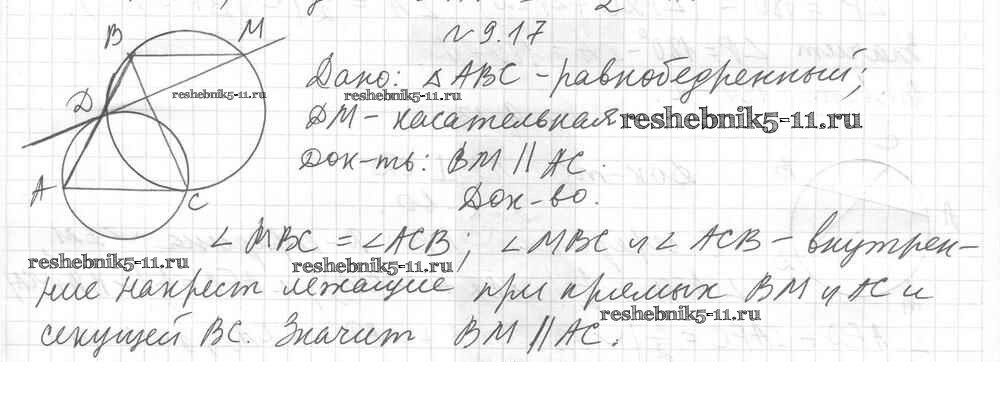 N 9.17
B M
Дано: △ABC - равнобедренный;
D reshebnik5-11.ru reshebnik5-11.ru
DM - касательная reshebnik5-11.ru
Док-ть: BM || AC.
A C
Док-во.
∠MBC = ∠ACB; ∠MBC и ∠ACB - внутрен-
reshebnik5-11.ru reshebnik5-11.ru
ние накрест лежащие при прямых BM и AC и
reshebnik5-11.ru
секущей BC. Значит BM || AC.